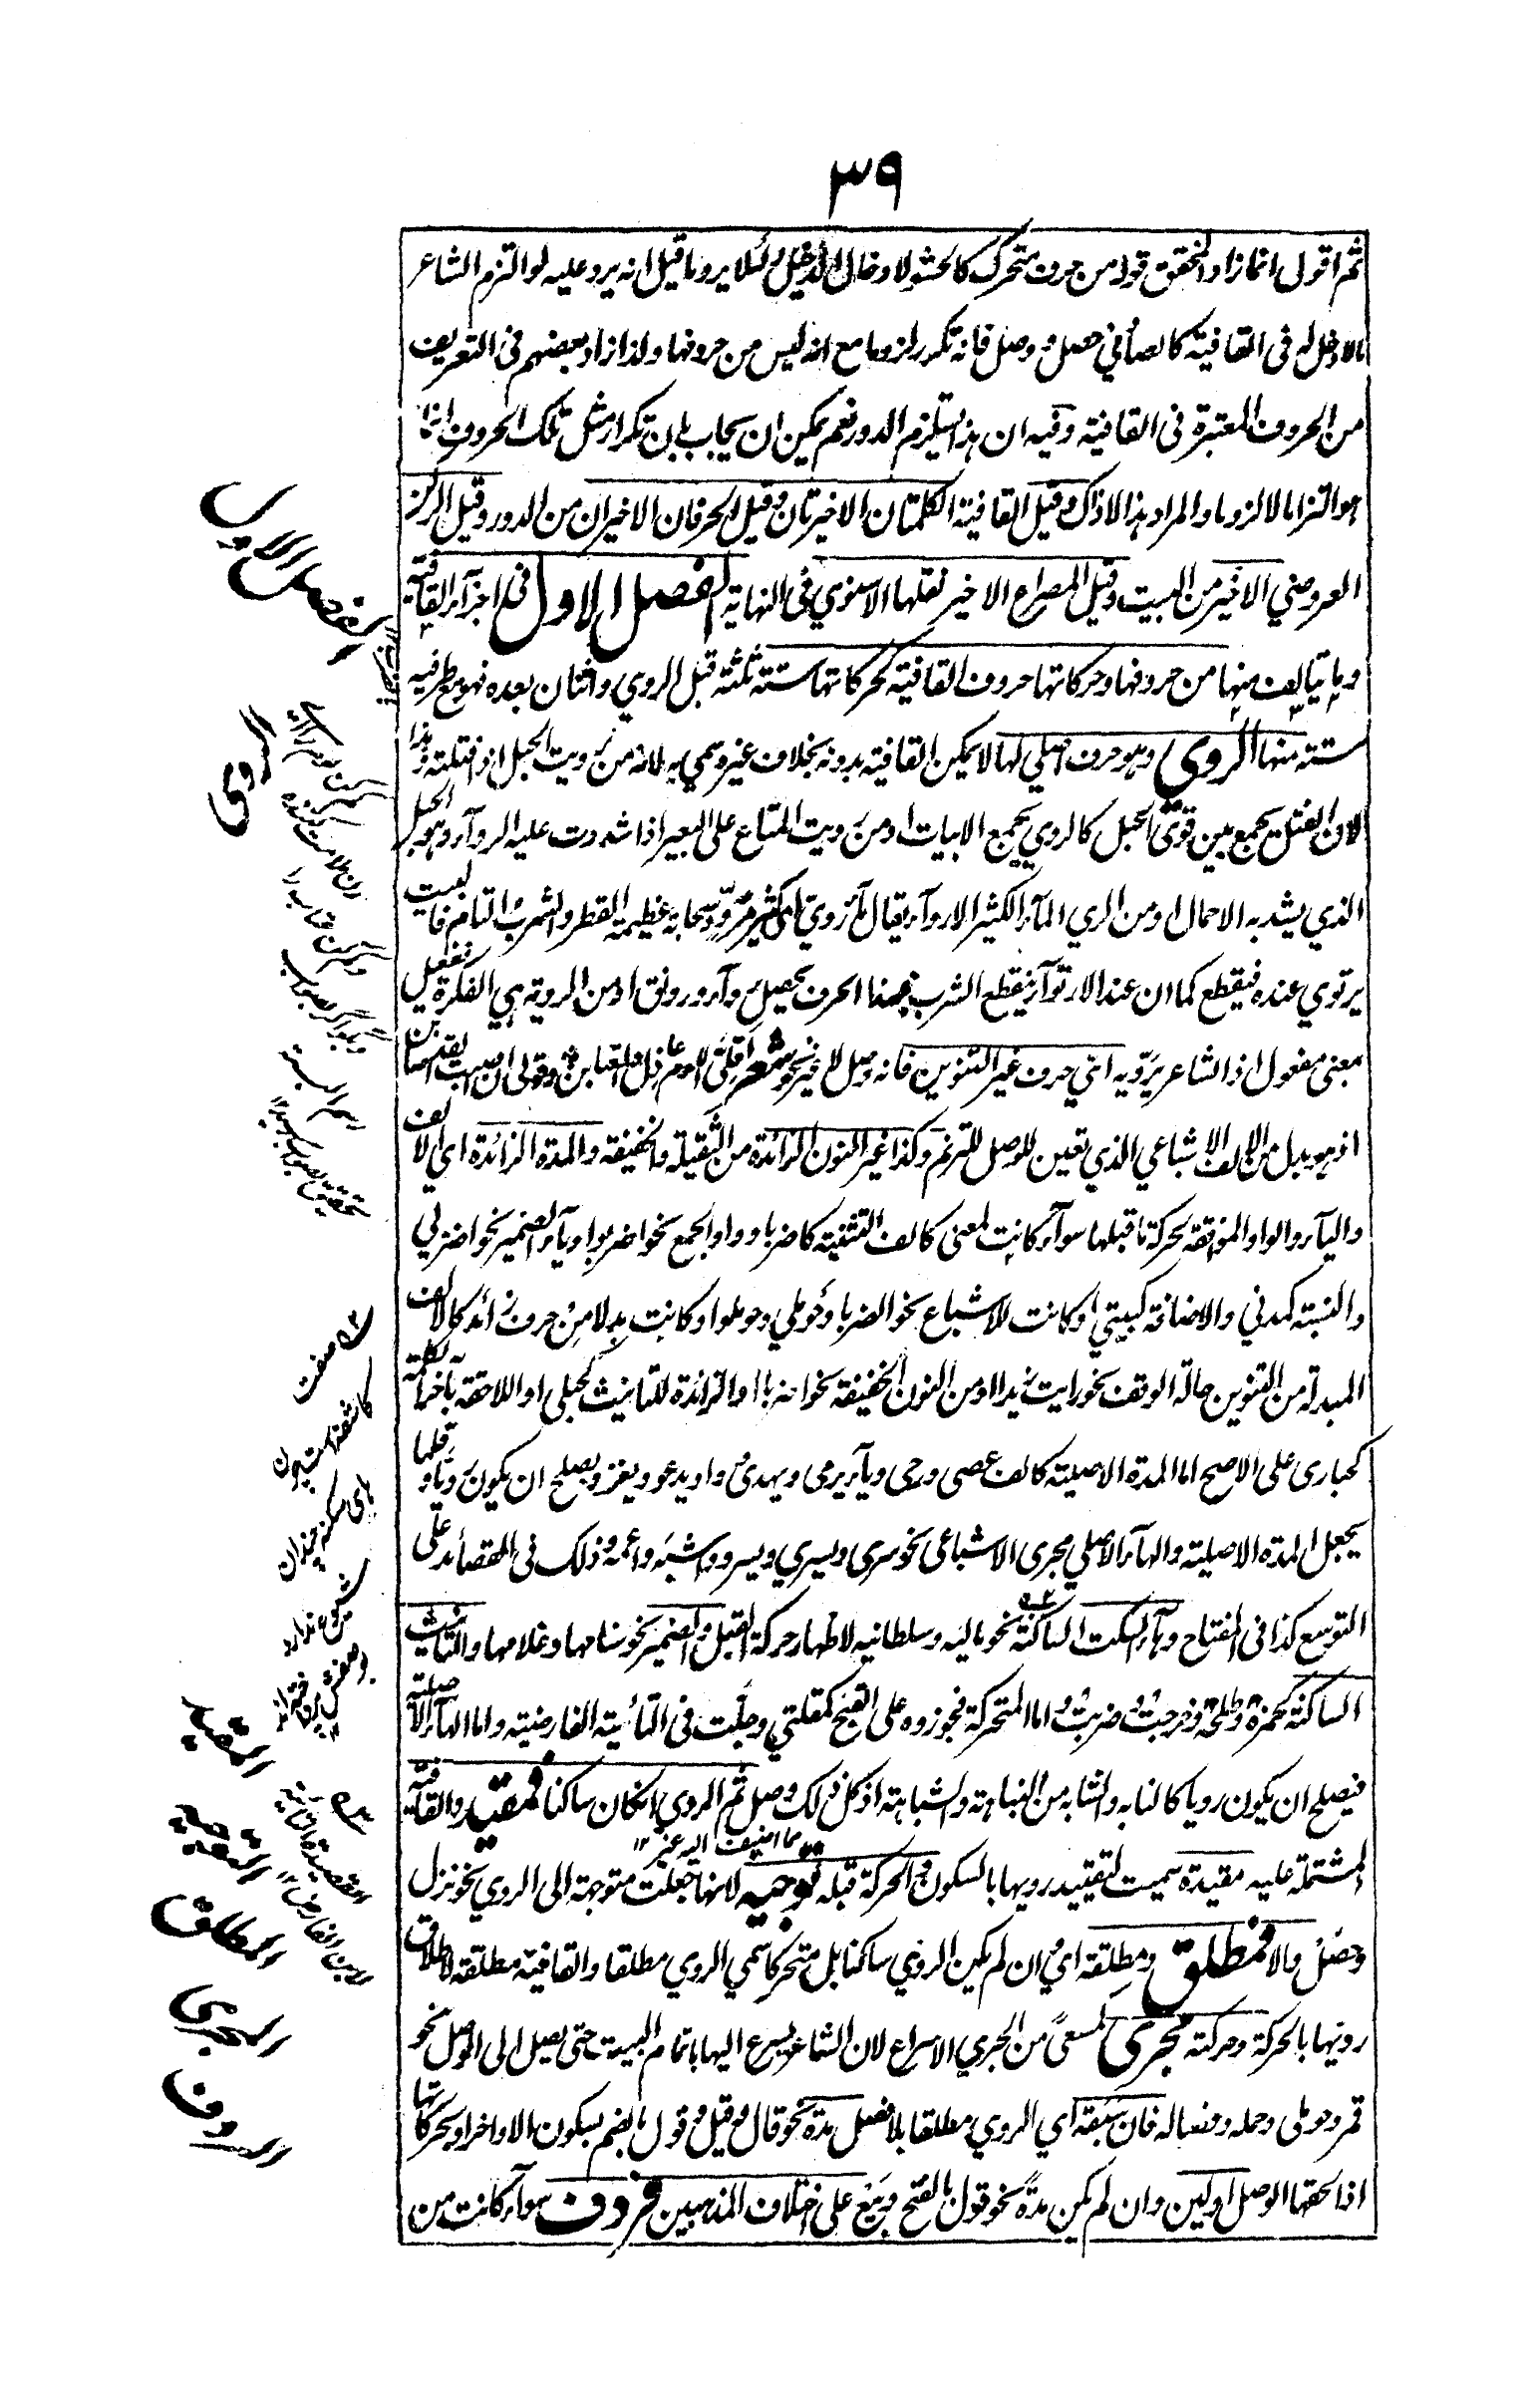 ٣٩
ثم اقول انما زاد المحقق قوله من حرف متحرك كالحشو لادخال الدخيل ولئلا يرد ما قيل انه يرد عليه لو التزم الشاعر
مالا دخل له فى القافية كالصاد في حصل ووصل فانه تكرر لزوما مع انه ليس من حروفها ولذا زاد بعضهم فى التعريف
من الحروف المعتبرة فى القافية وفيه ان هذا يستلزم الدور نعم يمكن ان يجاب بان تكرار مثل تلك الحروف انما
هو التزاما لا لزوما والمراد هذا لا ذاك وقيل القافية الكلمتان الاخيرتان وقيل الحرفان الاخيران من الدور وقيل الركن
العروضي الاخير من البيت وقيل المصراع الاخير نقلها الاسنوي فى النهاية الفصل الاول فى اجزآء القافية
وما يتالف منها من حروفها وحركاتها حروف القافية كحركاتها ستة ثلثة قبل الروي واثنان بعده فهو مع طرفيه
ستة منها الروي وهو حرف اصلي لها لا يمكن القافية بدونه بخلاف غيره سمي به لانه من رويت الحبل اذا فتلته وذا
لان الفتل يجمع بين قوى الحبل كالروي يجمع الابيات او من رويت المتاع على البعير اذا شددت عليه الروآء وهو الحبل
الذي يشد به الاحمال او من الري المآء الكثير الاروآء يقال مآء روي اى كثير مرو وسحابة عظيمة القطر والشرب التام فالبيت
يرتوي عنده فيقطع كما ان عند الارتوآء ينقطع الشرب فبهذا الحرف يحصل روآء ورونق او من الروية هي الفكرة فعيل
بمعنى مفعول اذ الشاعر يرويه اتي حرف غير التنوين فانه وصل لا غير نحو شعر اقلى اللوم عاذل والعتابن وقولى ان اصبت لقد اصابن
اذ هو بدل من الالف الاشباعي الذي تعين للوصل للترنم وكذا غير النون الزائدة من الثقيلة والخفيفة والمدة الزائدة اي الالف
واليآء والواو الموافقة لحركة ما قبلها سوآء كانت لمعنى كالف التثنية كاضربا وواو الجمع نحو اضربوا ويآء الضمير نحو اضربي
والنسبة كمدني والاضافة كبيتي او كانت للاشباع نحو الضربا وحوملي وحوملوا او كانت بدلا من حرف زائد كالالف
المبدلة من التنوين حالة الوقف نحو رايت زيدا او من النون الخفيفة نحو اضربا او الزائدة للتانيث كحبلى او اللاحقة بآخر الكلمة
كحبارى على الاصح اما المدة الاصلية كالف عصى ورحى ويآء يرمي ويهدي وواو يدعو ويغزو يصلح ان يكون رويا وقلما
يجعل المدة الاصلية والهآء الاصلي مجرى الاشباعى نحو سرى ويسري ويسرو واشبه واعمه وذلك فى القصائد على
التوسع كذا فى المفتاح وهآء السكت الساكنة نحو ماليه وسلطانيه لاظهار حركة القبل والضمير نحو سنامها وغلامها والتانيث
الساكنة كحمزة وطلحة وفرحت وضربت واما المتحركة فجوزوه على القبح كمقلتي وجلت فى التائية الفارضية واما الهآء الاصلية
فيصلح ان يكون رويا كالنابه والشابه من النباهة والشباهة اذ كل ذلك وصل ثم الروي ان كان ساكنا فمقيد والقافية
المشتملة عليه مقيدة سميت لتقييد رويها بالسكون والحركة قبله توجيه لانها جعلت متوجهة الى الروي نحو نزل
مما اضيف اليه غير ١٢
وحصل والا فمطلق ومطلقة اى ان لم يكن الروي ساكنا بل متحركا سمي الروي مطلقا والقافية مطلقة لاطلاق
رويها بالحركة وحركته مجرى لمسعى من الجري الاسراع لان الشاعر يسرع اليها باتمام البيت حتى يصل الى الوصل نحو
قمر وحوملى وحمله وفعاله فان سبقه اي الروي مطلقا بلا فصل مدة نحو قال وقيل وقول بالضم بسكون الاواخر او بحركاتها
اذا لحقها الوصل او لين وان لم يكن مدة نحو قول بالفتح وبيع على اختلاف المذهبين فردف سوآء كانت من
الفصل الاول
الروي
صفت
المقيد
التوجيه
القصيدة التائية
لابن الفارض ١٢
المطلق
المجرى
الردف